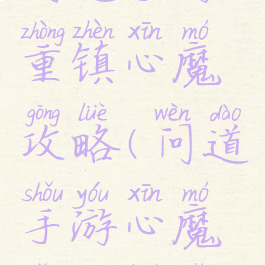 zhòng zhèn xīn mó
重镇心魔
gōng lüè wèn dào
攻略(问道
shǒu yóu xīn mó
手游心魔